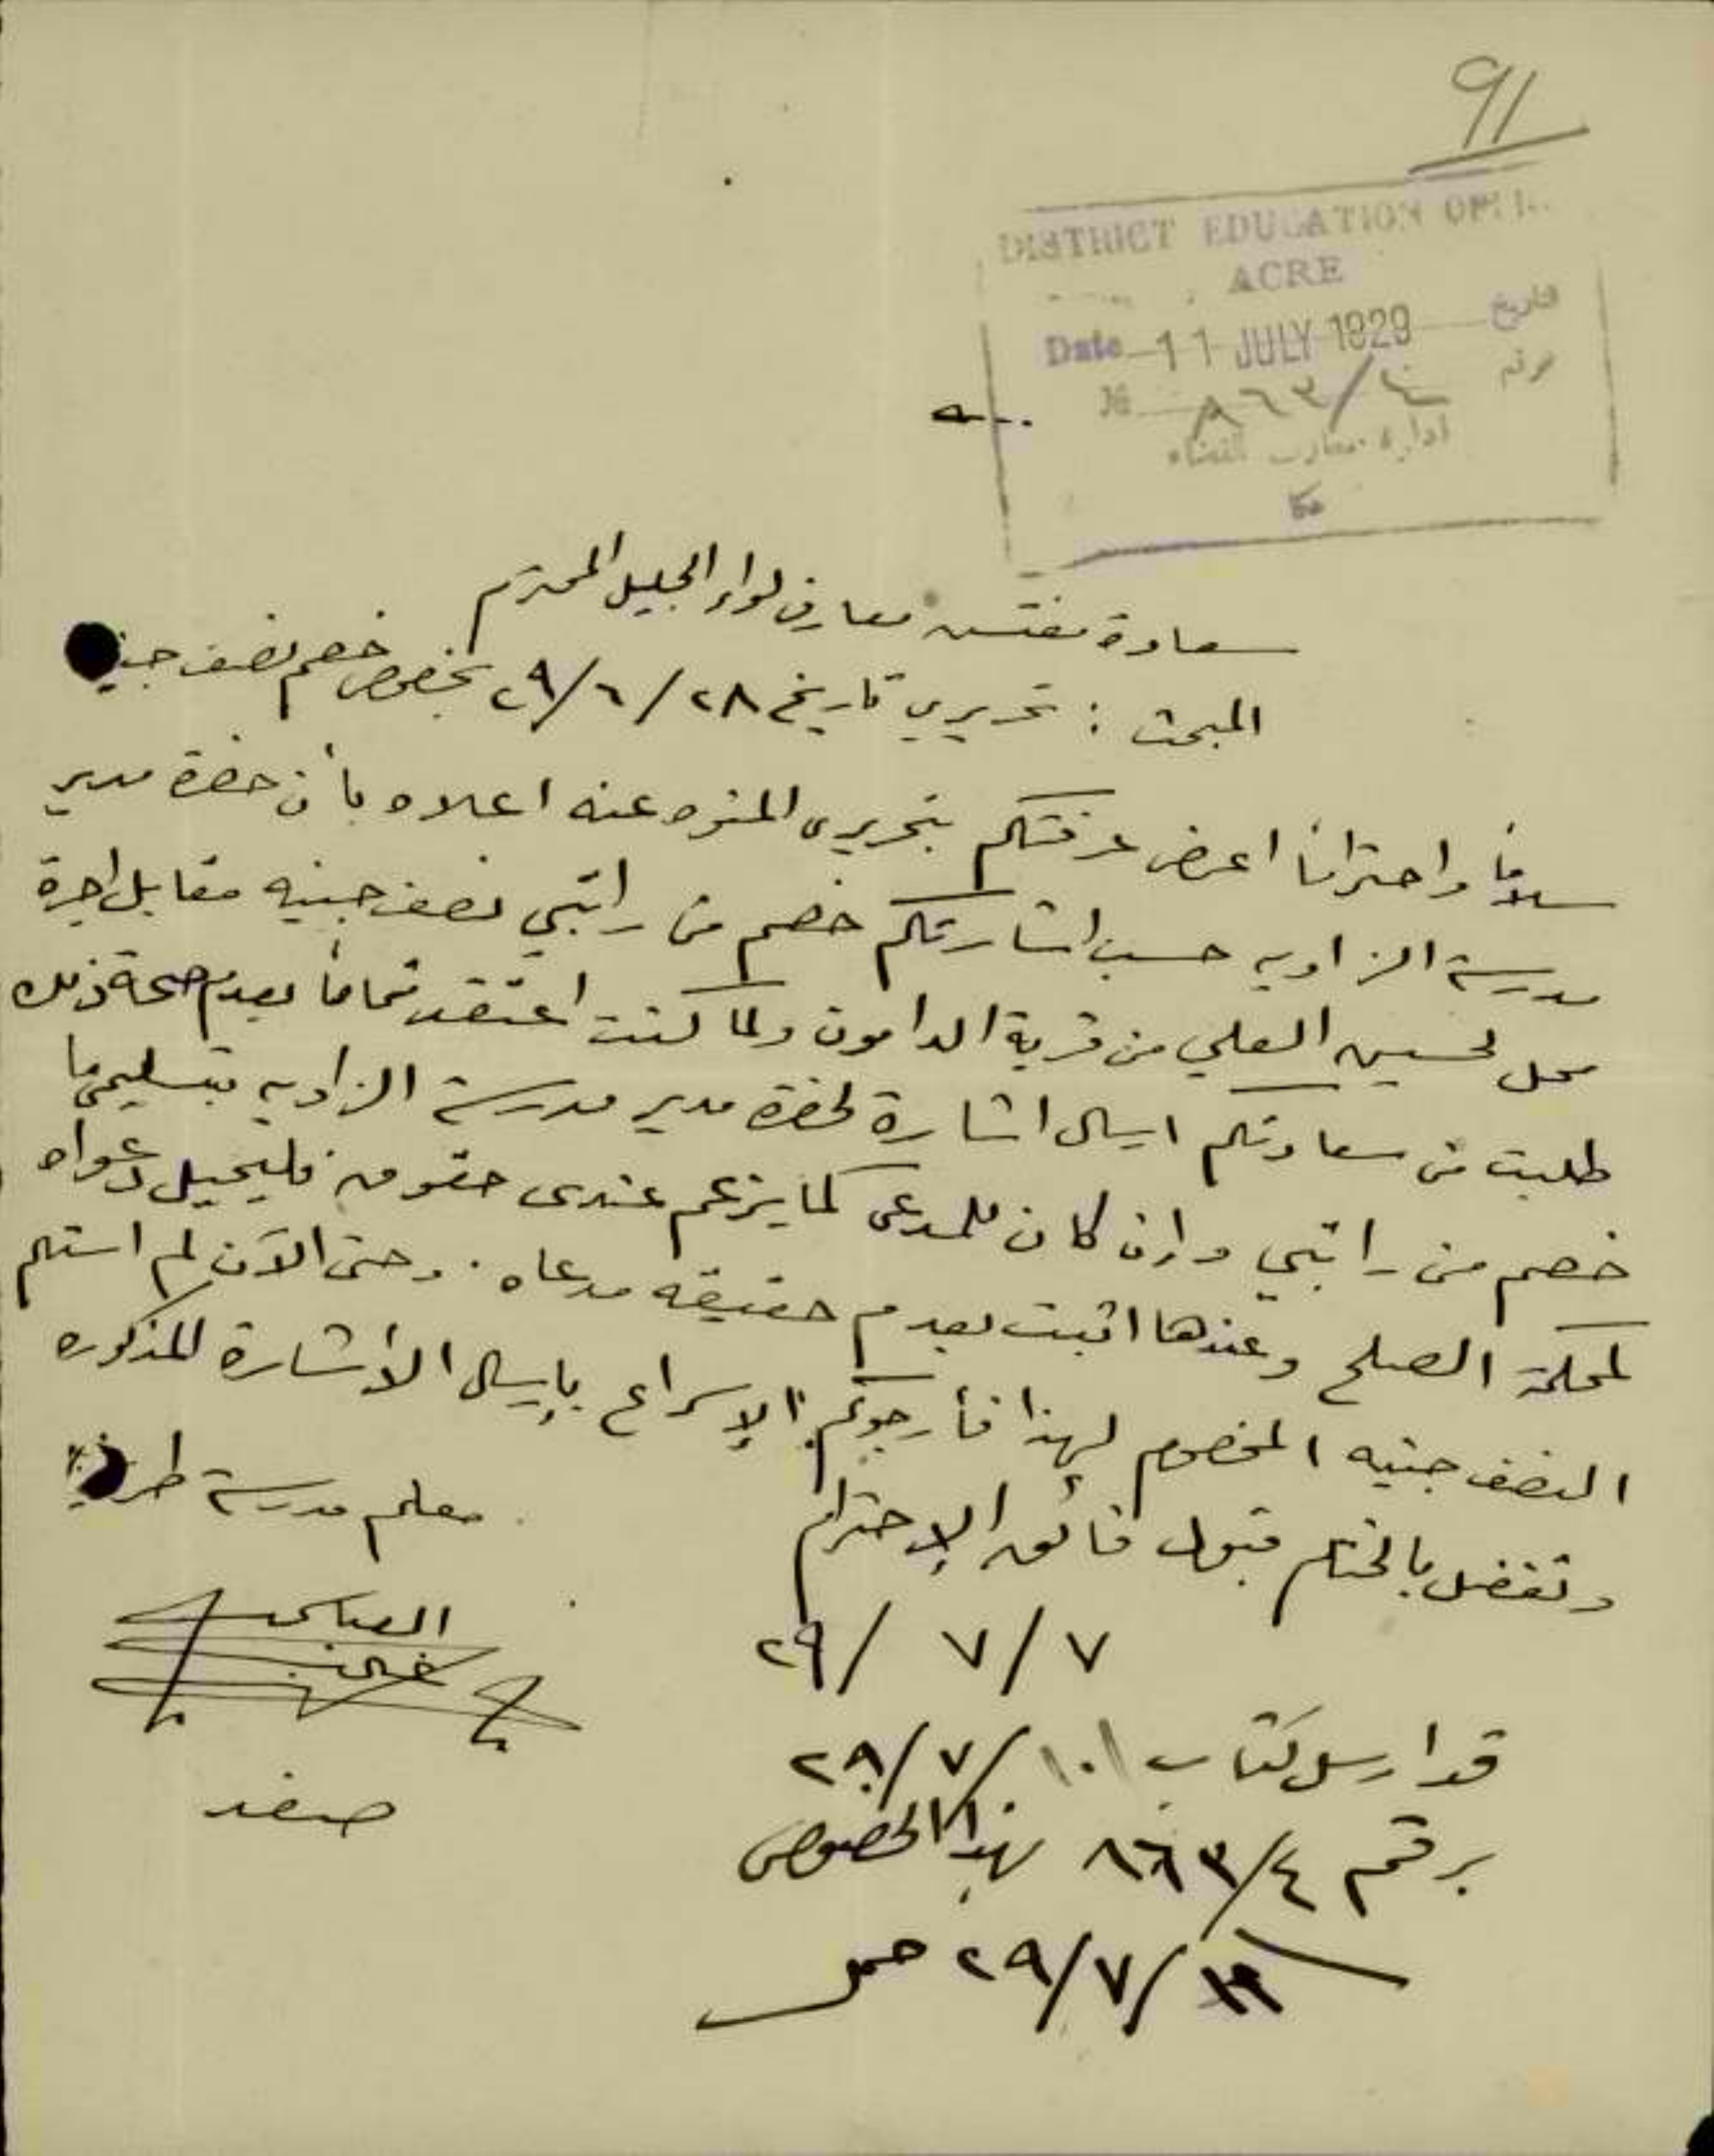 91
DISTRICT EDUCATION
ACRE
Date 11 JULY 1929 تاريخ
№ ٨٦٣/٤ نمرة
ادارة معارف القضاء
عكا
سعادة مفتش معارف لواء الجليل المحترم
المبحث : تحريري تاريخ ٢٨/٦/٢٩ بخصوص خصم نصف جنيه
سلاماً واحتراماً اعرض عرفتكم بتحريري المنوه عنه اعلاه بأن حضرة مدير
مدرسة الزاويه حسب اشارتكم خصم من راتبي نصف جنيه مقابل اجرة
محل لحسين العلي من قرية الدامون ولما كنت اعتقد تماماً بعدم صحة ذلك
طلبت من سعادتكم ارسال اشارة لحضرة مدير مدرسة الزاويه بتسليمي ما
خصم من راتبي وان كان للمدعى كما يزعم عندى حقوق فليحيل دعواه
لمحكمة الصلح وعندها اثبت بعدم حقيقة مدعاه . وحتى الآن لم استلم
النصف جنيه المخصوم لهذا فأرجوكم الإسراع بإرسال الأشارة المذكوره
وتفضل بالختام قبول فائق الإحترام
معلم مدرسة
٧/٧/٢٩
صفد
قد ارسل كتاب ١٠/٧/٢٩
برقم ٨٦٣/٤ بهذا الخصوص
٢٩/٧/